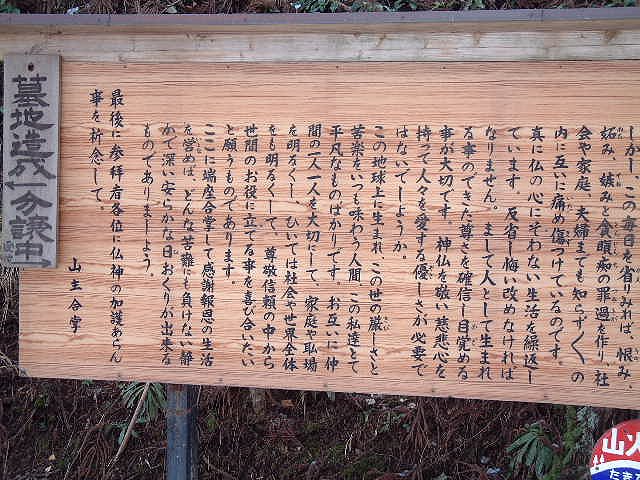 しかし、この毎日を省りみれば、恨み、
妬み、嫉みと貪瞋痴の罪過を作り、社
会や家庭、夫婦までも知らず〱の
内に互いに痛め傷つけているのです。
真に仏の心にそわない生活を繰返し
ています。反省し悔い改めなければ
なりません。まして人として生まれ
る事のできた尊さを確信し目覚める
事が大切です。神仏を敬い慈悲心を
持って人々を愛する優しさが必要で
はないでしょうか。
この地球上に生まれ、この世の厳しさと
苦楽をいつも味わう人間、この私達とて
平凡なものばかりです。お互いに仲
間の一人一人を大切にして、家庭や職場
を明るくし、ひいては社会や世界全体
をも明るくして、尊敬信頼の中から
世間のお役に立てる事を喜び合いたい
と願うものであります。
ここに端座合掌して感謝報恩の生活
を営めば、どんな苦難にも負けない静
かで深い安らかな日おくりが出来る
ものでありましょう。
最後に参拝者各位に仏神の加護あらん
事を祈念して。
山主合掌
墓地造成分譲中
山火
たき